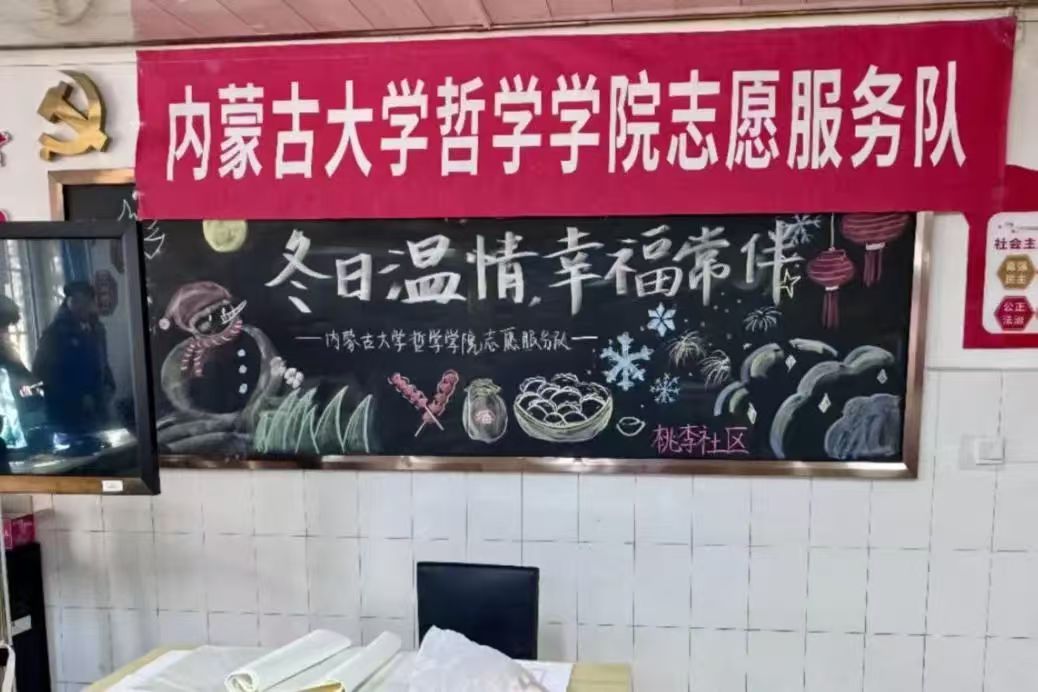 内蒙古大学哲学学院志愿服务队
冬日温情,幸福常伴
—内蒙古大学哲学学院志愿服务队—
桃李社区
社会主
富强
民主
公正
法治